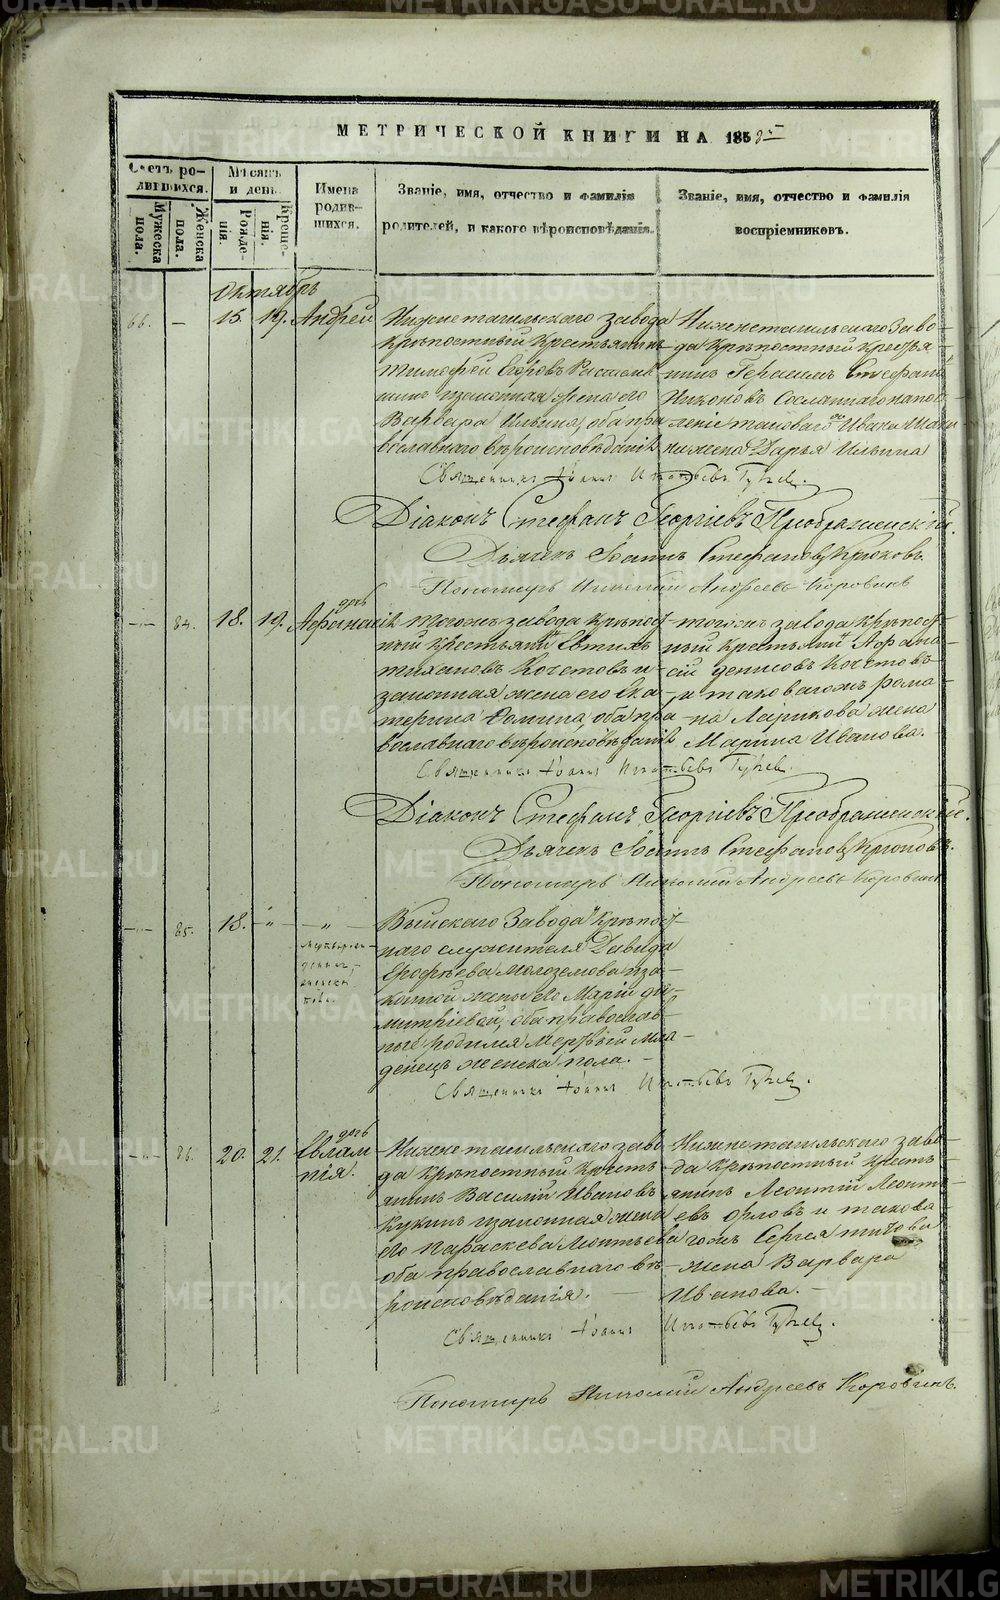 МЕТРИЧЕСКОЙ КНИГИ НА 185
Счетъ ро-
дившихся.
Мужеска пола.
Женска пола.
Мѣсяцъ
и день.
Рожде-
нія.
Креще-
нія.
Имена
родив-
шихся.
Званіе, имя, отчество и фамилія
родителей, и какого вѣроисповѣданія.
Званіе, имя, отчество и фамилія
воспріемниковъ.
Октябрь
66. — 15. 19. Андрей
Нижнетагильскаго завода
крѣпостный крестьянинъ
Тимофей Егоровъ
законная жена его
Варвара Ильина, оба пра
вославнаго вѣроисповѣданія
Нижнетагильскаго заво-
да крѣпостный крестья
нинъ Герасимъ Стефан
Никоновъ Сосланнаго на посе
леніе таковаго же Ивана
жена Дарья Ильина
Священникъ Іоаннъ Игнатьевъ
Діаконъ Стефанъ Георгіевъ Преображенскій.
Дьячекъ Іоаннъ Стефановъ Крюковъ.
Пономарь Николай Андреевъ Коровинъ
84. 18. 19. дочь
Афанасія
Тогожъ завода крѣпост-
ный крестьянинъ Евтихъ
Тихановъ Кочетовъ и
законная жена его Ека
терина Фомина, оба пра
вославнаго вѣроисповѣданія
тогожъ завода крѣпост
ный крестьянинъ Афана
сій Денисовъ Кочетовъ
и таковагожъ Рома-
на Ларикова жена
Марина Иванова.
Священникъ Іоаннъ Игнатьевъ
Діаконъ Стефанъ Георгіевъ Преображенскій.
Дьячекъ Іоаннъ Стефановъ Крюковъ.
Пономарь Николай Андреевъ Коровинъ
85. 18. — " — — " —
мертворож-
денный
женска
пола.
Выйскаго Завода крѣпост
наго служителя Давыда
Ерофѣева Молоземова и за-
конной жены его Маріи Ди-
митріевой, оба православ-
ные родился мертвый мла-
денецъ женска пола.
Священникъ Іоаннъ Игнатьевъ
86. 20. 21. дочь
Евлам
пія.
Нижнетагильскаго заво
да крѣпостный кресть
янинъ Василій Ивановъ
Кукинъ и законная жена
его Параскева Леонтьева
оба православнаго вѣ-
роисповѣданія.
Нижнетагильскаго заво-
да крѣпостный кресть-
янинъ Леонтій Леонть-
евъ Орловъ и такова
гожъ Сергея Титова
жена Варвара
Иванова.
Священникъ Іоаннъ Игнатьевъ
Пономарь Николай Андреевъ Коровинъ.
METRIKI.GASO-URAL.RU